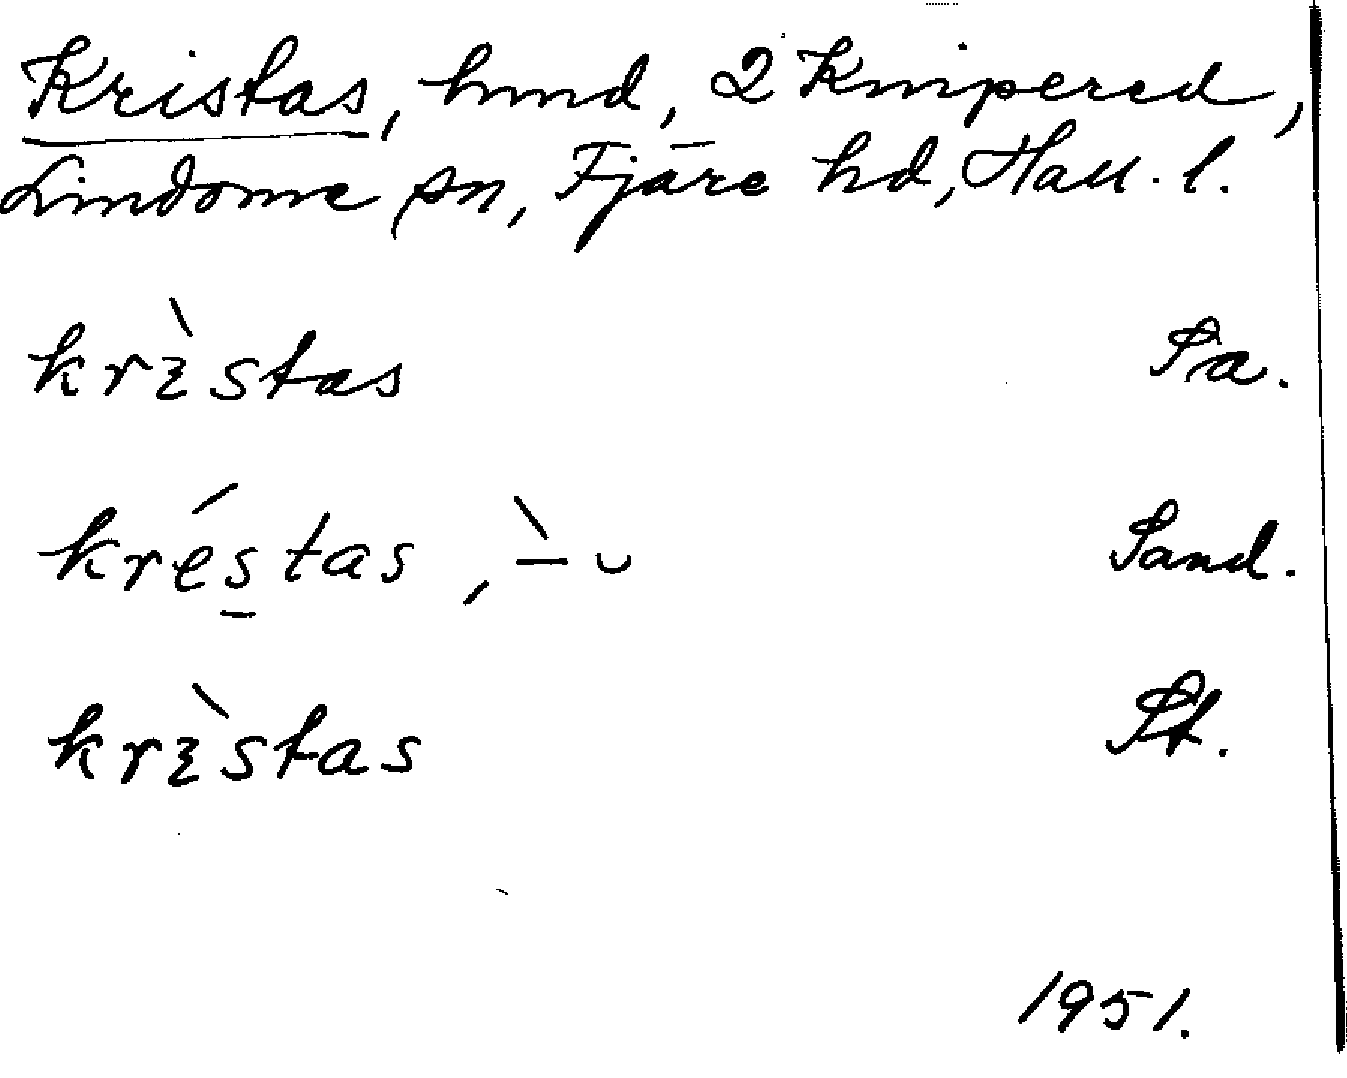 Kristas, hmnd, 2 Knipered,
Lindome sn, Fjäre hd, Hall. l.
krɛ̀stas Pa.
krés̱tas, –̀ ᴗ Sand.
krɛ̀stas St.
1951.